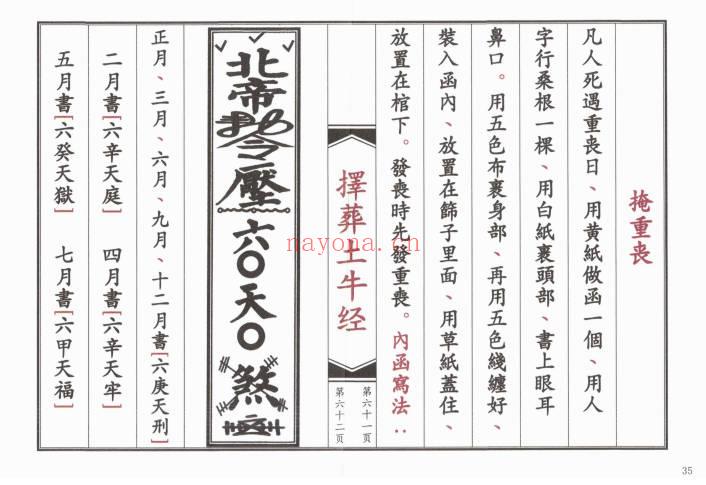 掩重喪
凡人死遇重喪日、用黃紙做函一個、用人
字行桑根一棵、用白紙裹頭部、書上眼耳
鼻口。用五色布裹身部、再用五色綫纏好、
裝入函內、放置在篩子里面、用草紙蓋住、
放置在棺下。發喪時先發重喪。內函寫法：
擇葬土牛经
第六十一页
第六十二页
北帝
令壓六〇天〇煞
正月、三月、六月、九月、十二月書[六庚天刑]
二月書[六辛天庭] 四月書[六辛天牢]
五月書[六癸天獄] 七月書[六甲天福]
nayona.cn
35